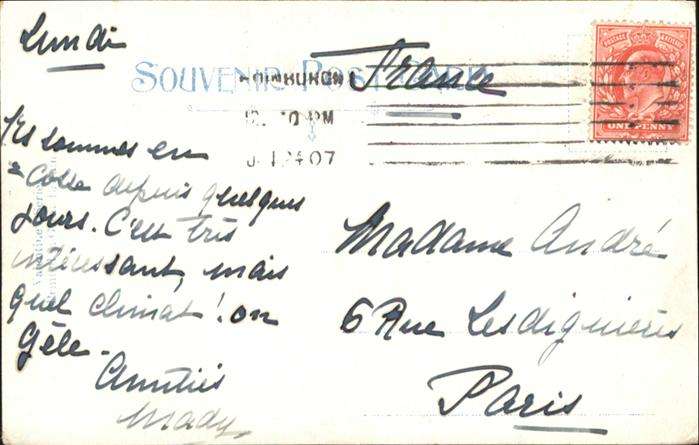 Lundi
France
SOUVENIR POST CARD
EDINBURGH
PM
07
POSTAGE & REVENUE
ONE PENNY
sommes en
depuis quelques
jours. C'est très
intéressant, mais
quel climat! on
gèle.
Amitiés
Mady
Madame André
6 Rue Lesdiguières
Paris